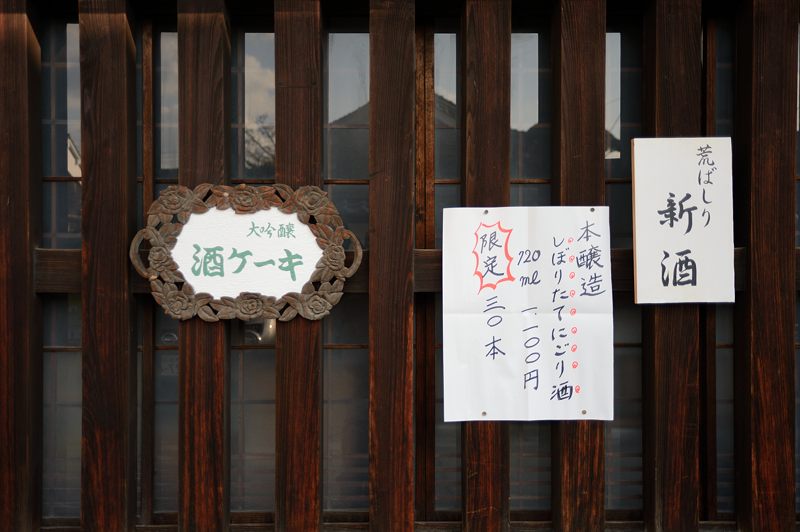 大吟醸
酒ケーキ
本醸造
しぼりたてにごり酒
720ml 一、一〇〇円
限定
三〇本
荒ばしり
新酒